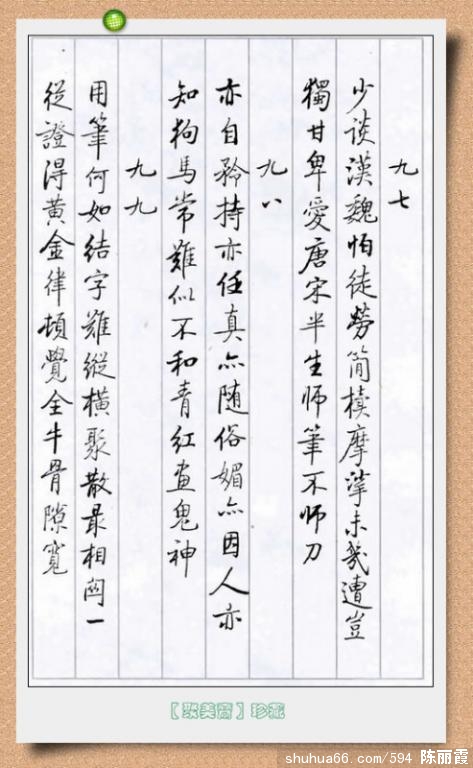 九七
少谈漢魏怕徒勞简牍摩挲未幾遭豈
獨甘卑愛唐宋半生师筆不师刀
九八
亦自矜持亦任真亦随俗媚亦因人亦
知狗馬常難似不和青红画鬼神
九九
用筆何如結字難縱横聚散最相関一
從證得黄金律頓覺全牛骨隙寬
【聚美齋】珍藏
shuhua66.com/594 陈丽霞